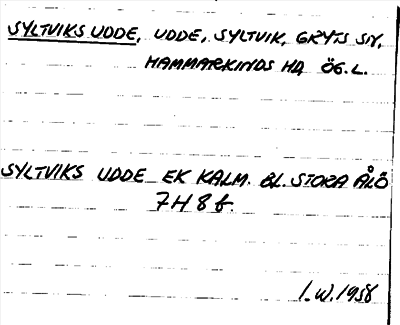 SYLTVIKS UDDE, UDDE, SYLTVIK, GRYTS SN,
HAMMARKINDS HD ÖG.L.
SYLTVIKS UDDE EK KALM. BL. STORA ÅLÖ
7H 8f.
I.W. 1958